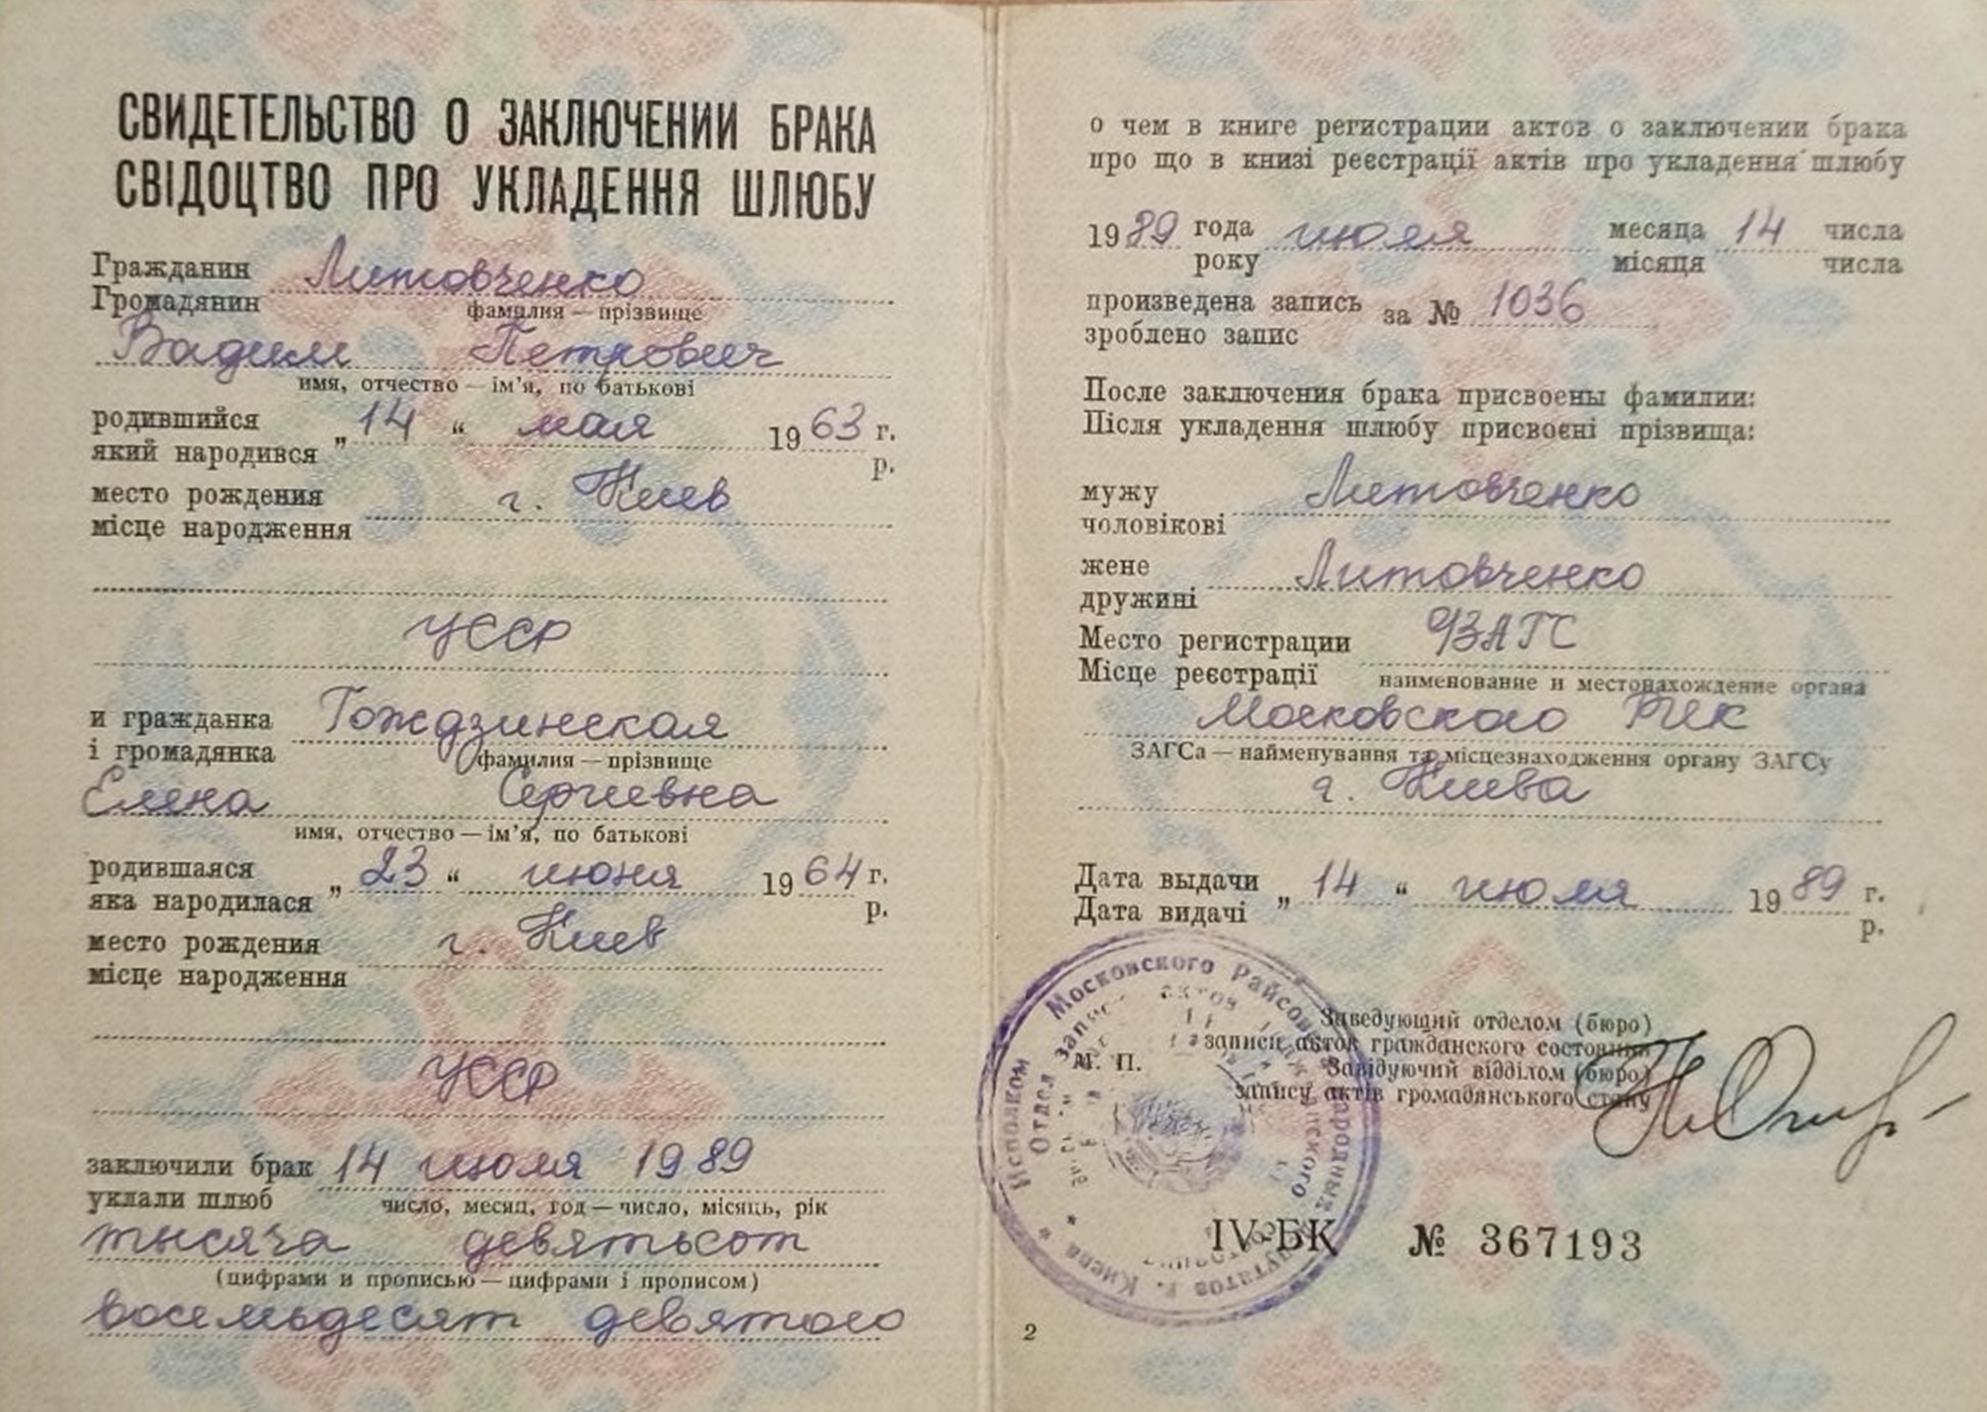 СВИДЕТЕЛЬСТВО О ЗАКЛЮЧЕНИИ БРАКА
СВІДОЦТВО ПРО УКЛАДЕННЯ ШЛЮБУ
Гражданин Литовченко
Громадянин
фамилия — прізвище
Вадим Петрович
имя, отчество — ім'я, по батькові
родившийся „14“ мая 1963 г.
який народився р.
место рождения г. Киев
місце народження
УССР
и гражданка Гождзинская
і громадянка
фамилия — прізвище
Елена Сергиевна
имя, отчество — ім'я, по батькові
родившаяся „23“ июня 1964 г.
яка народилася р.
место рождения г. Киев
місце народження
УССР
заключили брак 14 июля 1989
уклали шлюб
число, месяц, год — число, місяць, рік
тысяча девятьсот
(цифрами и прописью — цифрами і прописом)
восемьдесят девятого
о чем в книге регистрации актов о заключении брака
про що в книзі реєстрації актів про укладення шлюбу
1989 года июля месяца 14 числа
року місяця числа
произведена запись за № 1036
зроблено запис
После заключения брака присвоены фамилии:
Після укладення шлюбу присвоєні прізвища:
мужу Литовченко
чоловікові
жене Литовченко
дружині
Место регистрации ЗАГС
Місце реєстрації
наименование и местонахождение органа
Московского РИК
ЗАГСа — найменування та місцезнаходження органу ЗАГСу
г. Киева
Дата выдачи „14“ июля 1989 г.
Дата видачі р.
Заведующий отделом (бюро)
записи актов гражданского состояния
М. П.
Завідуючий відділом (бюро)
запису актів громадянського стану
Исполком Московского Райсовета народных депутатов г. Киева
Отдел записи актов гражданского
IV-БК № 367193
2